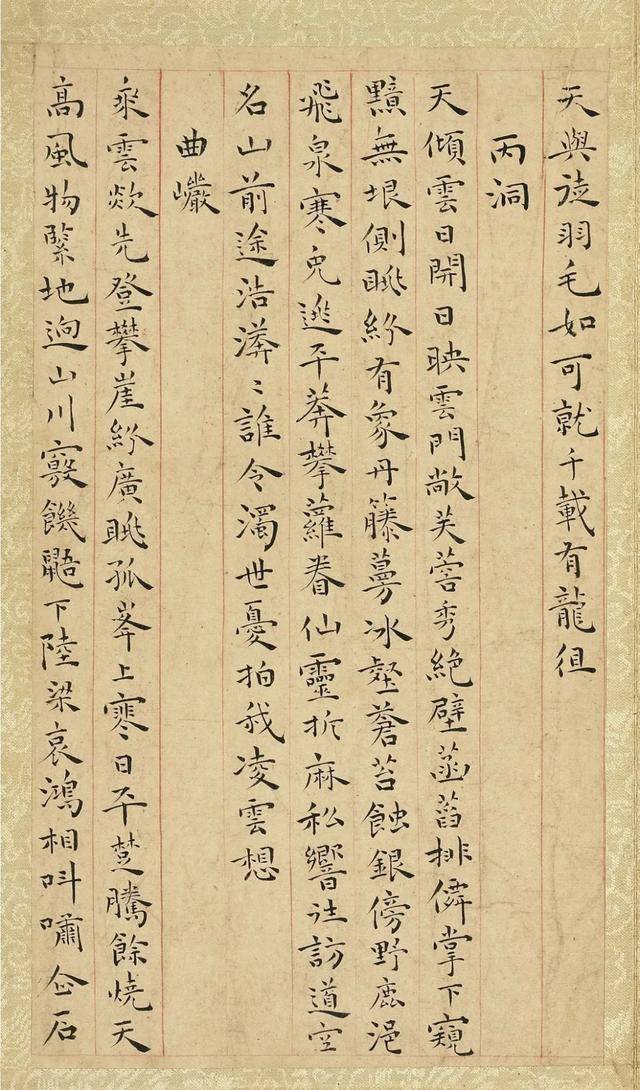 天與羽毛如可就千載有龍徂
丙洞
天傾雲日開日映雲門敞芙蓉秀絕壁菡萏排僊掌下窺
黯無垠側眺紛有象丹籐蔓冰壑蒼苔蝕銀傍野鹿浥
飛泉寒兎逃平莽攀蘿眷仙靈折麻私響往訪道空
名山前途浩漭〻誰令濁世憂拍我凌雲想
曲巖
乘雲欻先登攀崖紛廣眺孤峯上寒日平楚騰餘燒天
高風物緊地迥山川竅饑鼯下陸梁哀鴻相叫嘯企石